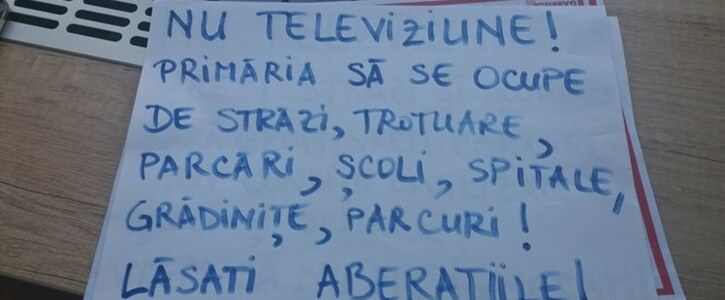 NU TELEVIZIUNE!
PRIMĂRIA SĂ SE OCUPE
DE STRĂZI, TROTUARE,
PARCĂRI, ȘCOLI, SPITALE,
GRĂDINIȚE, PARCURI!
LĂSATI ABERAȚIILE!